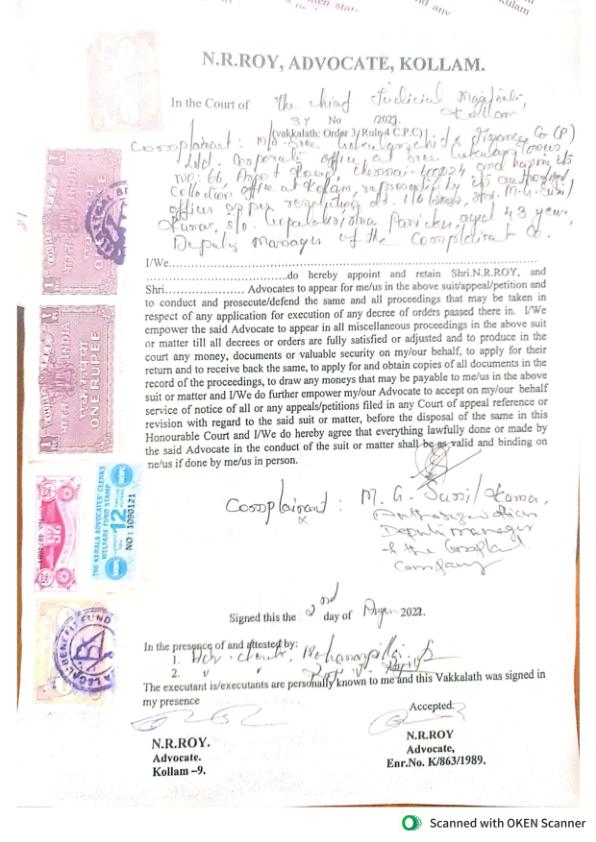 N.R.ROY, ADVOCATE, KOLLAM.
In the Court of The Chief Judicial Magistrate, Kollam
No /202
(vakkalath: Order 3/Rule 4 C.P.C)
Complainant : M/s Sree Gokulam chit & Finance Co (P)
Ltd. Corporate office at Sree Gokulam Towers
No: 66, Arcot Road, Chennai-600024 and having its
office at Kollam, represented by its authorised
officer as per resolution dt. Shri. M.G. Sunil
Kumar, S/o. Gopalakrishna Panicker, aged 43 years,
Deputy Manager of the Complainant Co.
I/We
do hereby appoint and retain Shri.N.R.ROY, and
Shri. Advocates to appear for me/us in the above suit/appeal/petition and
to conduct and prosecute/defend the same and all proceedings that may be taken in
respect of any application for execution of any decree of orders passed there in. I/We
empower the said Advocate to appear in all miscellaneous proceedings in the above suit
or matter till all decrees or orders are fully satisfied or adjusted and to produce in the
court any money, documents or valuable security on my/our behalf, to apply for their
return and to receive back the same, to apply for and obtain copies of all documents in the
record of the proceedings, to draw any moneys that may be payable to me/us in the above
suit or matter and I/We do further empower my/our Advocate to accept on my/our behalf
service of notice of all or any appeals/petitions filed in any Court of appeal reference or
revision with regard to the said suit or matter, before the disposal of the same in this
Honourable Court and I/We do hereby agree that everything lawfully done or made by
the said Advocate in the conduct of the suit or matter shall be as valid and binding on
me/us if done by me/us in person.
Complainant : M. G. Sunil Kumar
Deputy manager
of the Complainant
Company
Signed this the 2nd day of 202
In the presence of and attested by:
1.
2.
The executant is/executants are personally known to me and this Vakkalath was signed in
my presence
Accepted.
N.R.ROY.
Advocate.
Kollam –9.
N.R.ROY
Advocate,
Enr.No. K/863/1989.
INDIA
ONE RUPEE
THE KERALA ADVOCATES' CLERKS
WELFARE FUND STAMP
12
NO : 1090121
LEGAL BENEFIT FUND
Scanned with OKEN Scanner